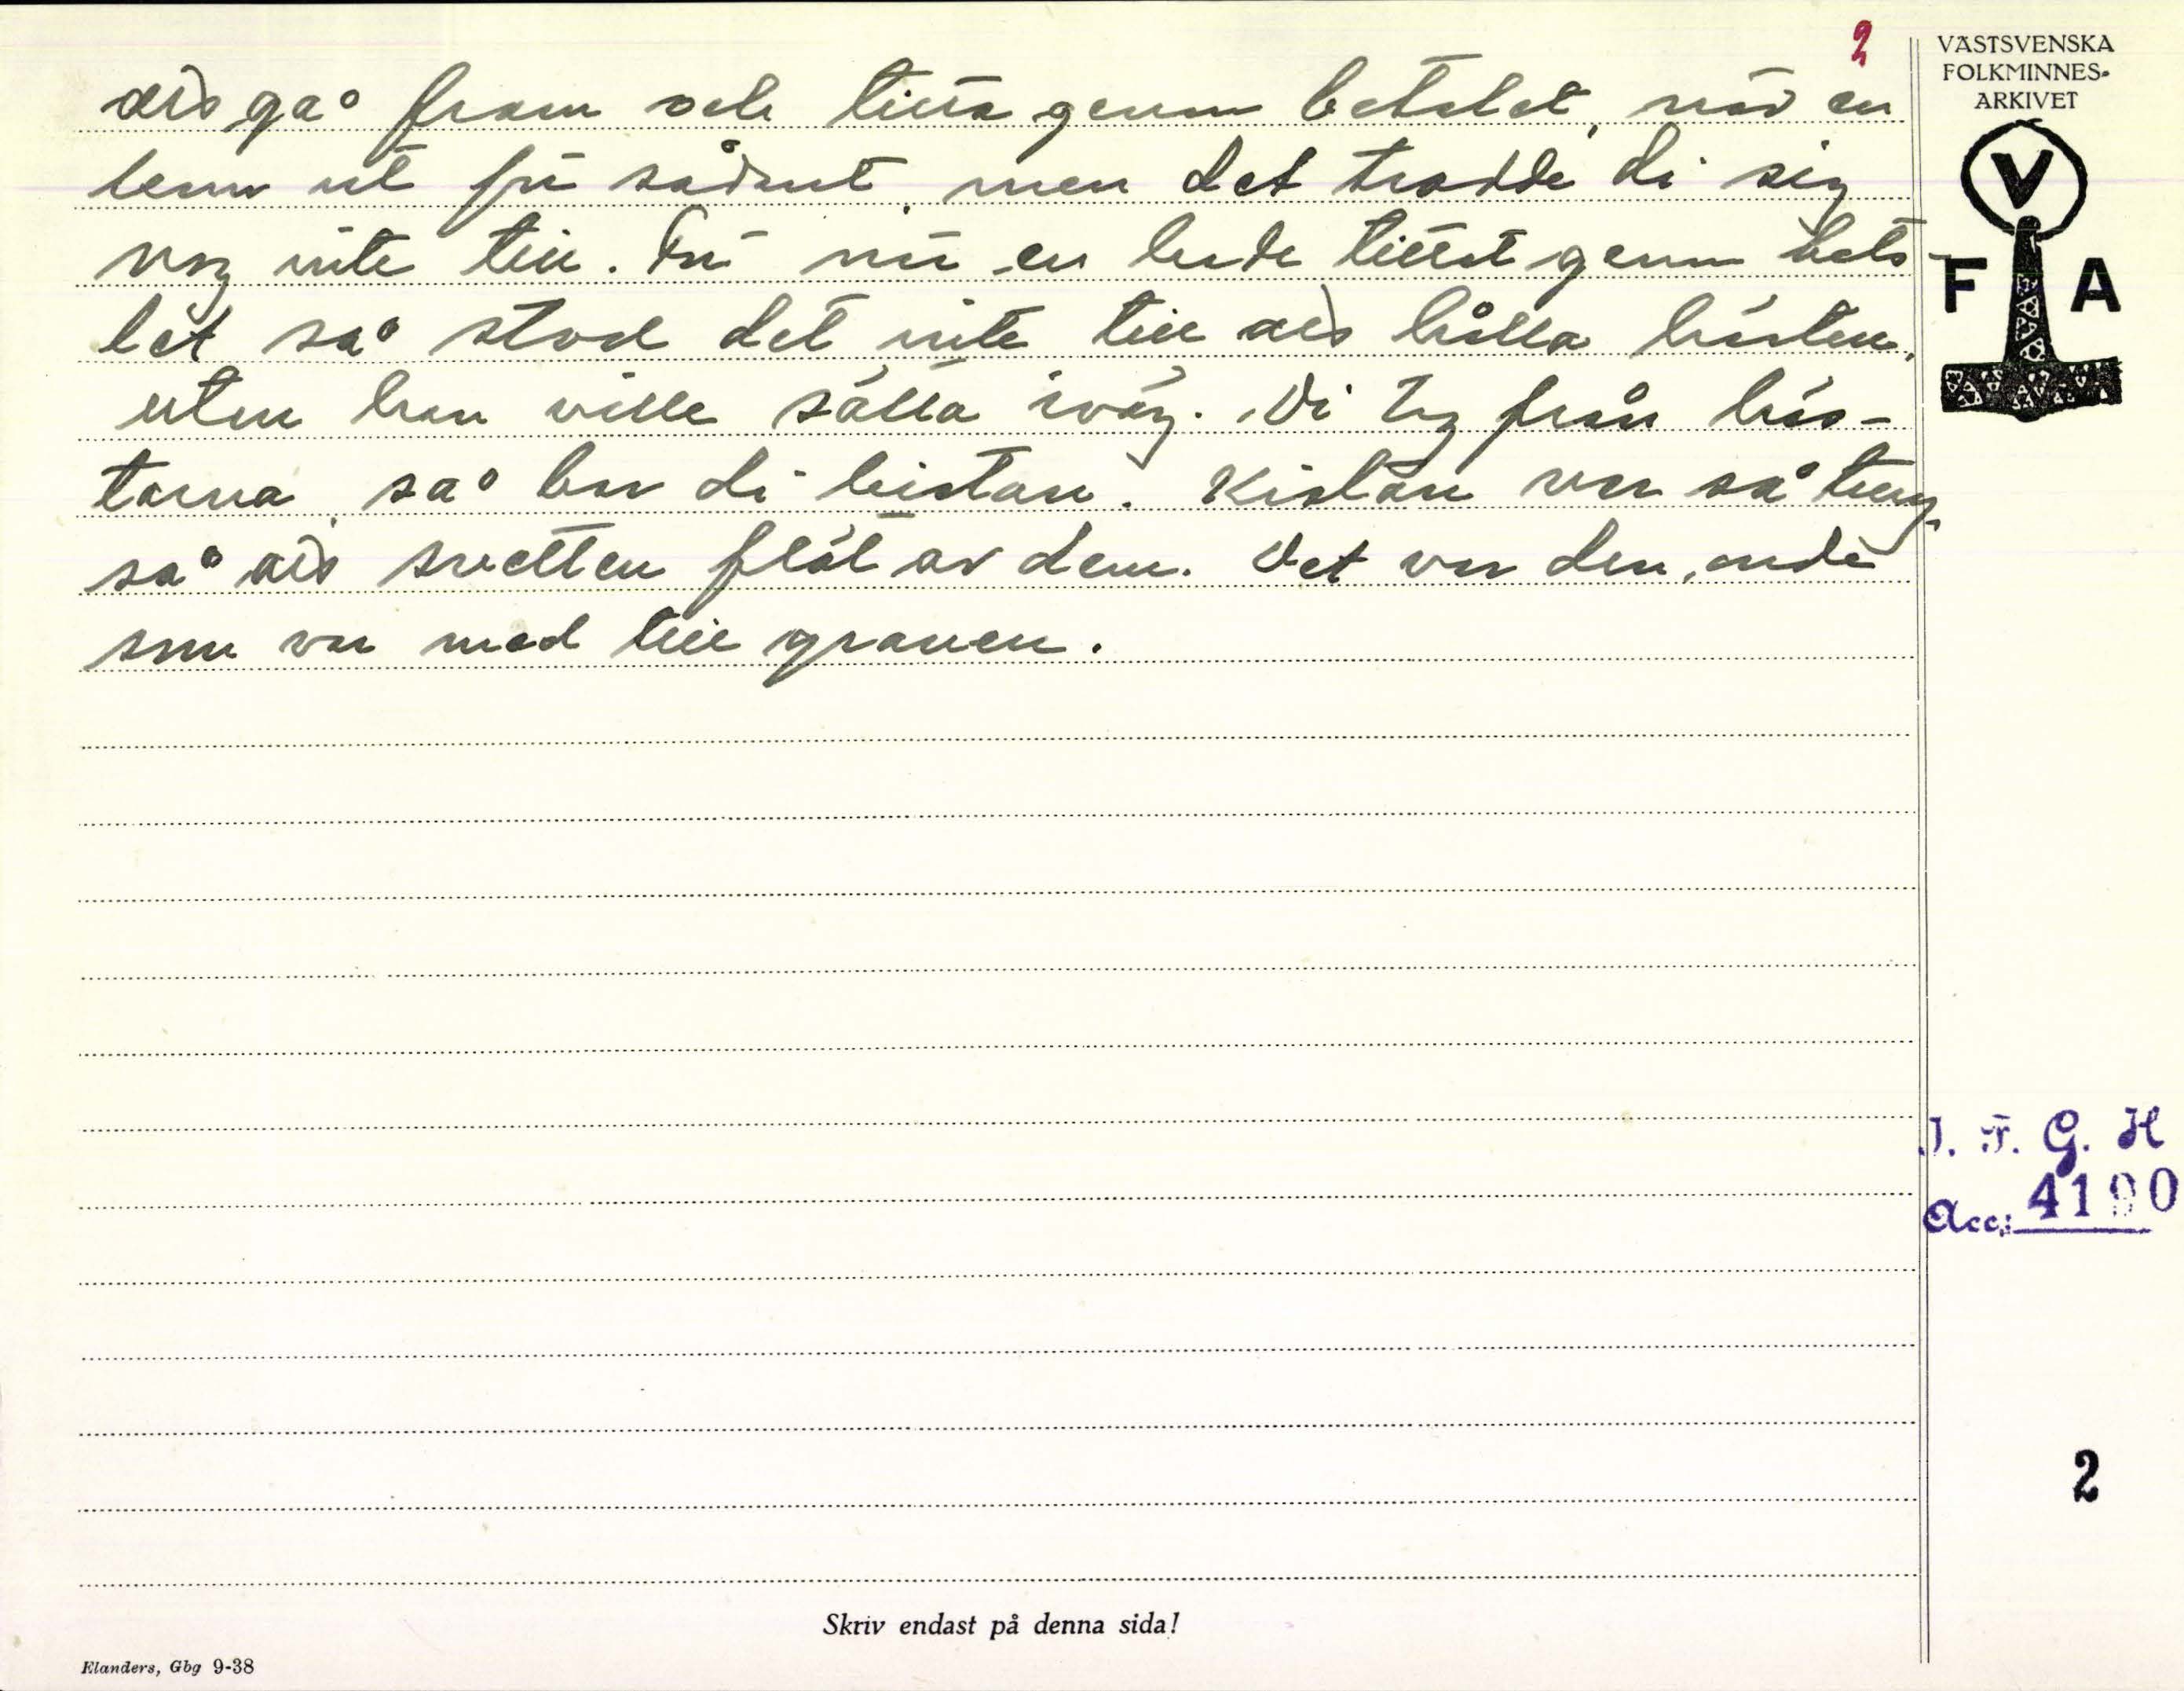 2
att gå fram och titta genom betslet, når en
kom ut för sådant, men det trodde di sig
nog inte till. För når en hade tittat genom bets-
let så stod det inte till att hålla hästen,
utan han ville sätta iväg. Di tog från häs-
tarna, så bar di kistan. Kistan var så tung,
så att svetten flöt av dem. Det var den onde
som var med till graven.
VÄSTSVENSKA
FOLKMINNES-
ARKIVET
V
F A
I. F. G. H
Acc: 4190
2
Skriv endast på denna sida!
Elanders, Gbg 9-38